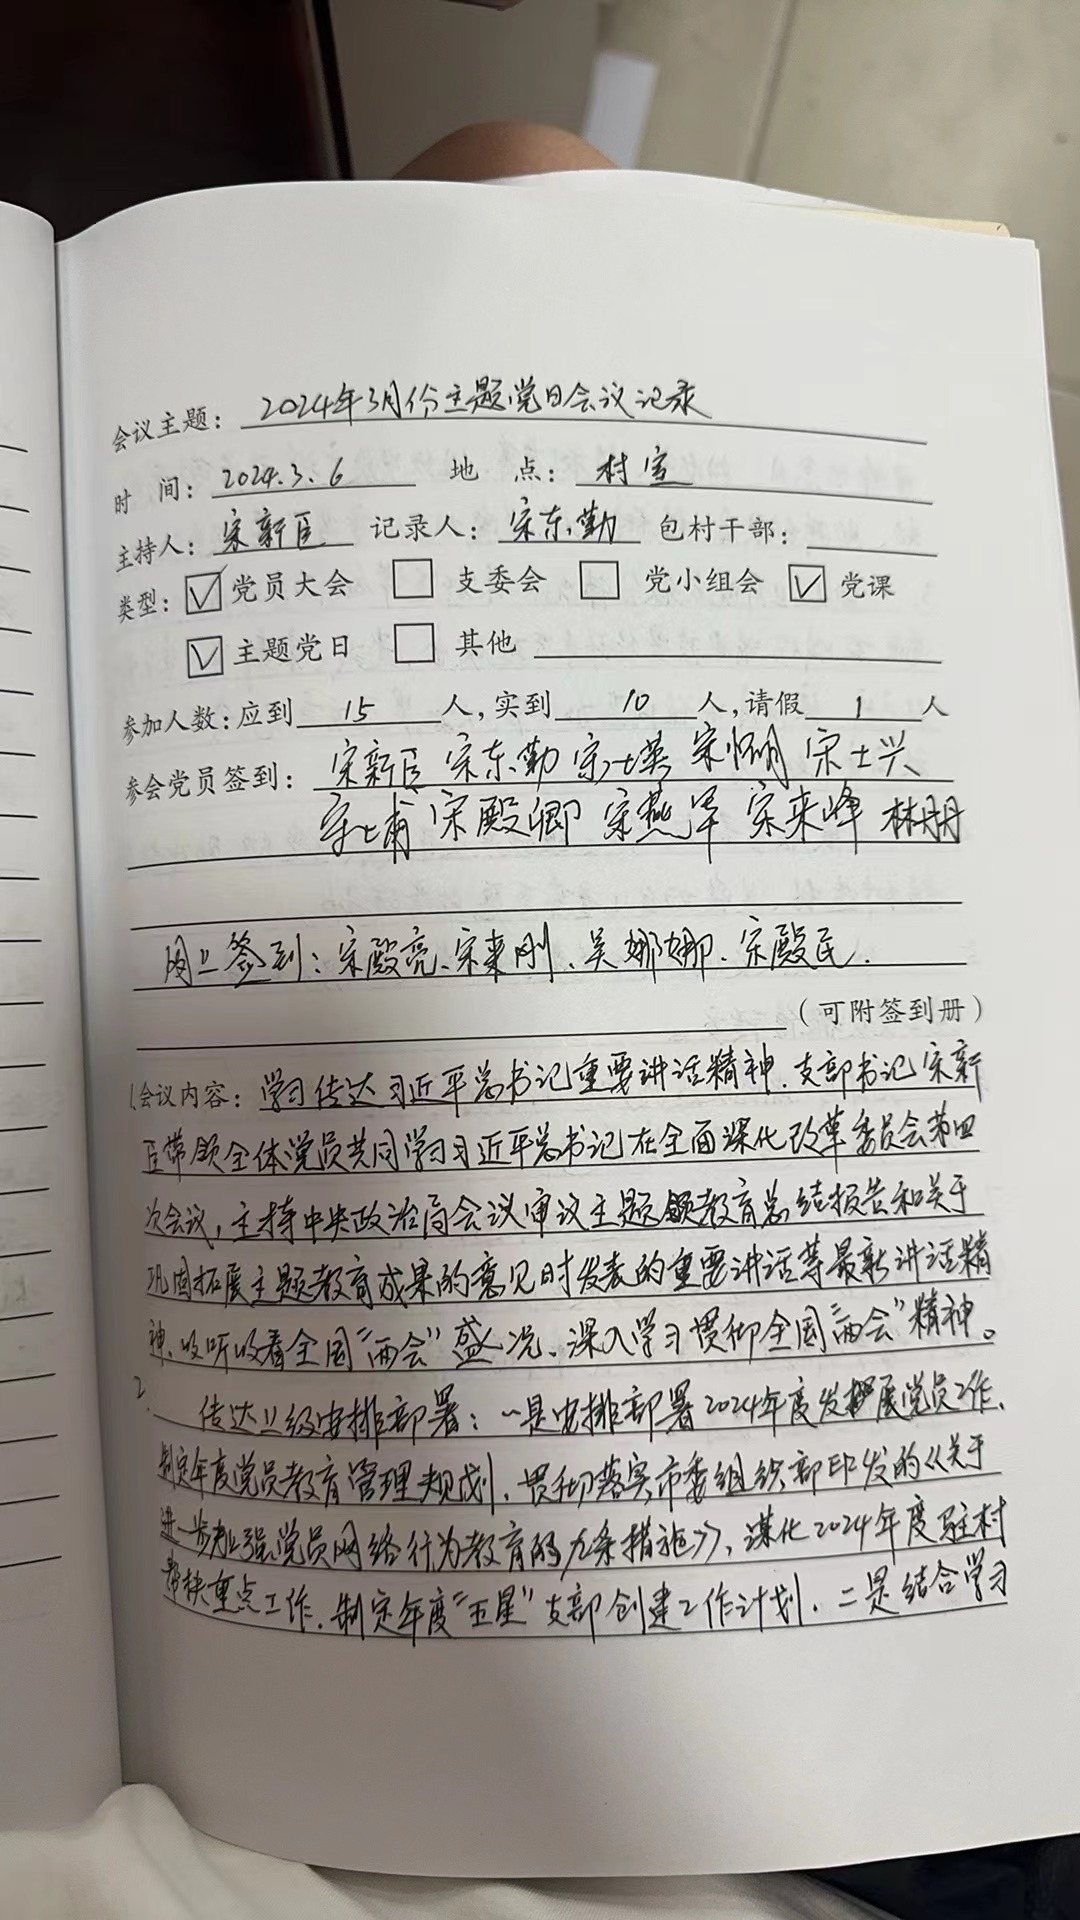 会议主题：2024年3月份主题党日会议记录
时 间：2024.3.6 地 点：村室
主持人：宋新臣 记录人：宋东勤 包村干部：
类型：☑党员大会 □支委会 □党小组会 ☑党课
☑主题党日 □其他
参加人数：应到15人，实到10人，请假1人
参会党员签到：宋新臣 宋东勤 宋士英 宋明 宋士兴
宋士甫 宋殿卿 宋燕 宋来峰 林朋
网上签到：宋殿亮、宋来刚、吴娜娜、宋殿民.
（可附签到册）
1.会议内容：学习传达习近平总书记重要讲话精神.支部书记宋新
臣带领全体党员共同学习习近平总书记在全面深化改革委员会第四
次会议，主持中央政治局会议审议主题教育总结报告和关于
巩固拓展主题教育成果的意见时发表的重要讲话等最新讲话精
神、收听收看全国“两会”盛况、深入学习贯彻全国“两会”精神。
2. 传达上级安排部署：一是安排部署2024年度发展党员工作、
制定年度党员教育管理规划，贯彻落实市委组织部印发的《关于
进一步加强党员网络行为教育的九条措施》，谋化2024年度驻村
帮扶重点工作.制定年度“五星”支部创建工作计划.二是结合学习